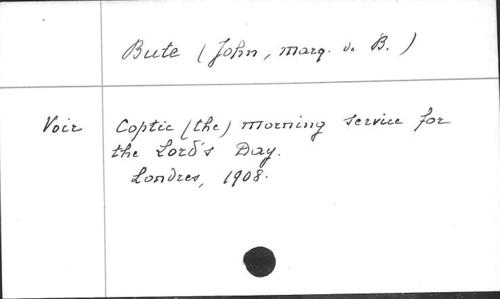 Bute (John, marq. de B.)
Voir Coptic (the) morning service for
the Lord's Day.
Londres, 1908.